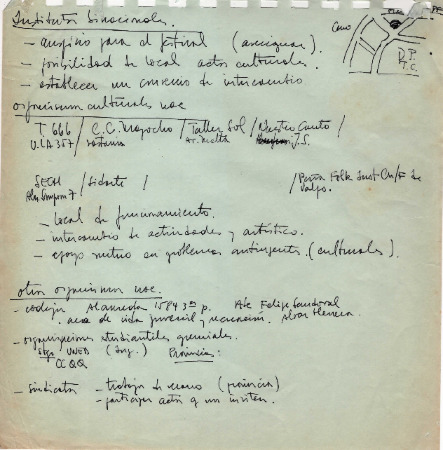 Institutos binacionales.
- auspicio para el festival (averiguar).
- posibilidad de local actos culturales.
- establecer un convenio de intercambio
organismos culturales nac
T. 666 / C. C. Mapocho / Taller Sol / Nuestro Canto /
J.S.
SECH / Sidarte / / Peña Folk Sn Cn/F de
Alm Simpson 7 Valpo.
- local de funcionamiento.
- intercambio de actividades y artístico.
- apoyo mutuo en problemas contingentes. (culturales)
otros organismos nac.
- codeju Alameda 1584 3º p. Ate Felipe Sandoval
. area de vida juvenil y recreación. Alvar Herrera
- organizaciones estudiantiles gremiales.
UNED (Ing.) Provincia:
CCQQ
- sindicatos - trabajo de verano (provincia)
- participar actos q nos inviten.